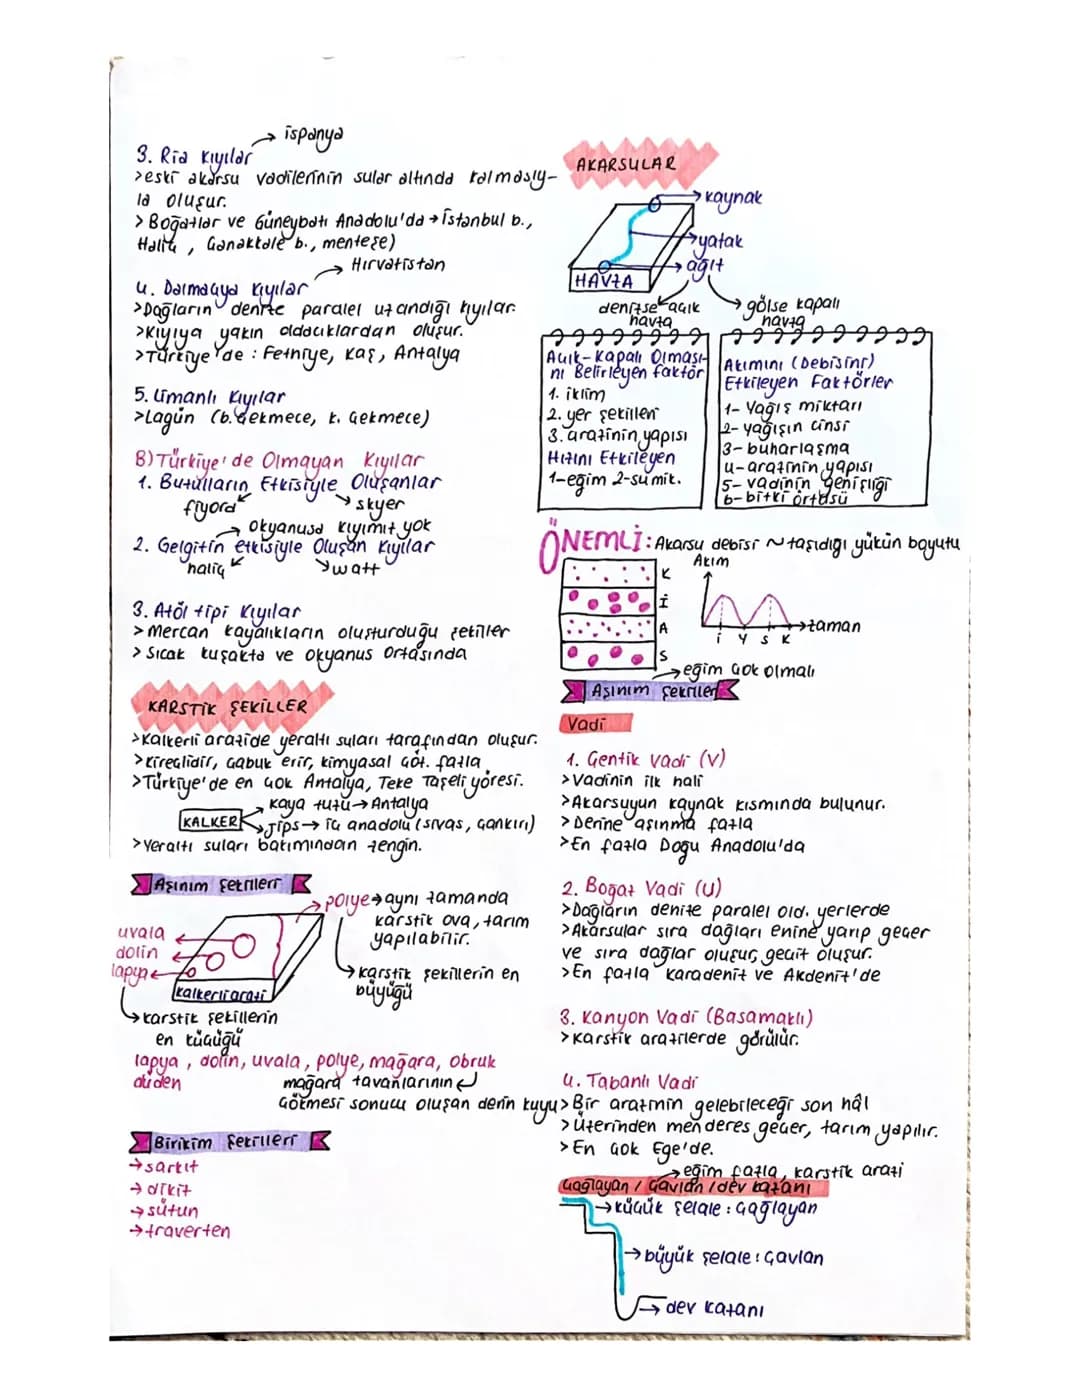 İspanya
3. Ria Kıyılar
>eski akarsu vadilerinin sular altında kalmasıy-
la oluşur.
> Boğazlar ve Güneybatı Anadolu'da → İstanbul b.,
Haliç, Çanakkale b., menteşe)
Hırvatistan
4. Dalmaçya Kıyılar
>Dağların denize paralel uzandığı kıyılar.
>Kıyıya yakın adacıklardan oluşur.
>Türkiye'de : Fethiye, Kaş, Antalya
5. Limanlı Kıyılar
>Lagün (b. Çekmece, k. Çekmece)
B) Türkiye'de Olmayan Kıyılar
1. Buzulların Etkisiyle Oluşanlar
fiyord skyer
okyanusa kıyımız yok
2. Gelgitin etkisiyle Oluşan Kıyılar
haliç watt
3. Atöl tipi Kıyılar
> Mercan kayalıkların oluşturduğu şekiller
> Sıcak kuşakta ve okyanus ortasında
KARSTİK ŞEKİLLER
>Kalkerli arazide yeraltı suları tarafından oluşur.
>kireçlidir, çabuk erir, kimyasal çöz. fazla
>Türkiye'de en çok Antalya, Teke Taşeli yöresi.
KALKER
kaya tuzu→ Antalya
Jips→ iç anadolu (sivas, çankırı)
>Yeraltı suları bakımından zengin.
Aşınım Şekilleri
polye→ aynı zamanda
karstik ova, tarım
yapılabilir.
→karstik şekillerin en
büyüğü
uvala
dolin
lapya
kalkerli arazi
→karstik şekillerin
en küçüğü
lapya, dolin, uvala, polye, mağara, obruk
düden
mağara tavanlarının
çökmesi sonucu oluşan derin kuyu
Birikim Şekilleri
→sarkıt
→ dikit
→ sütun
→traverten
AKARSULAR
kaynak
yatak
ağız
HAVZA
denizse açık
havza
gölse kapalı
havza
Açık-Kapalı Olması-
nı Belirleyen faktör
1. iklim
2. yer şekilleri
3. arazinin yapısı
Hızını Etkileyen
1-eğim 2-su mik.
Akımını (Debisini)
Etkileyen Faktörler
1- Yağış miktarı
2- yağışın cinsi
3- buharlaşma
4-arazinin yapısı
5- vadinin genişliği
6-bitki örtüsü
ÖNEMLİ: Akarsu debisi ~ taşıdığı yükün boyutu
K
İ
A
S
Akım
İ Y S K
zaman
→eğim çok olmalı
Aşınım Şekilleri
Vadi
1. Çentik Vadi (V)
>Vadinin ilk hali
>Akarsuyun kaynak kısmında bulunur.
> Derine aşınma fazla
>En fazla Doğu Anadolu'da
2. Boğaz Vadi (U)
>Dağların denize paralel old. yerlerde
>Akarsular sıra dağları enine yarıp geçer
ve sıra dağlar oluşur, geçit oluşur.
>En fazla karadeniz ve Akdeniz'de
3. Kanyon Vadi (Basamaklı)
>Karstik arazilerde görülür.
4. Tabanlı Vadi
>Bir arazinin gelebileceği son hâl
>Üzerinden menderes geçer, tarım yapılır.
> En çok Ege'de.
→eğim fazla, karstik arazi
Çağlayan / Çavlan / dev kazanı
→küçük şelale : çağlayan
→ büyük şelale : Çavlan
→ dev kazanı